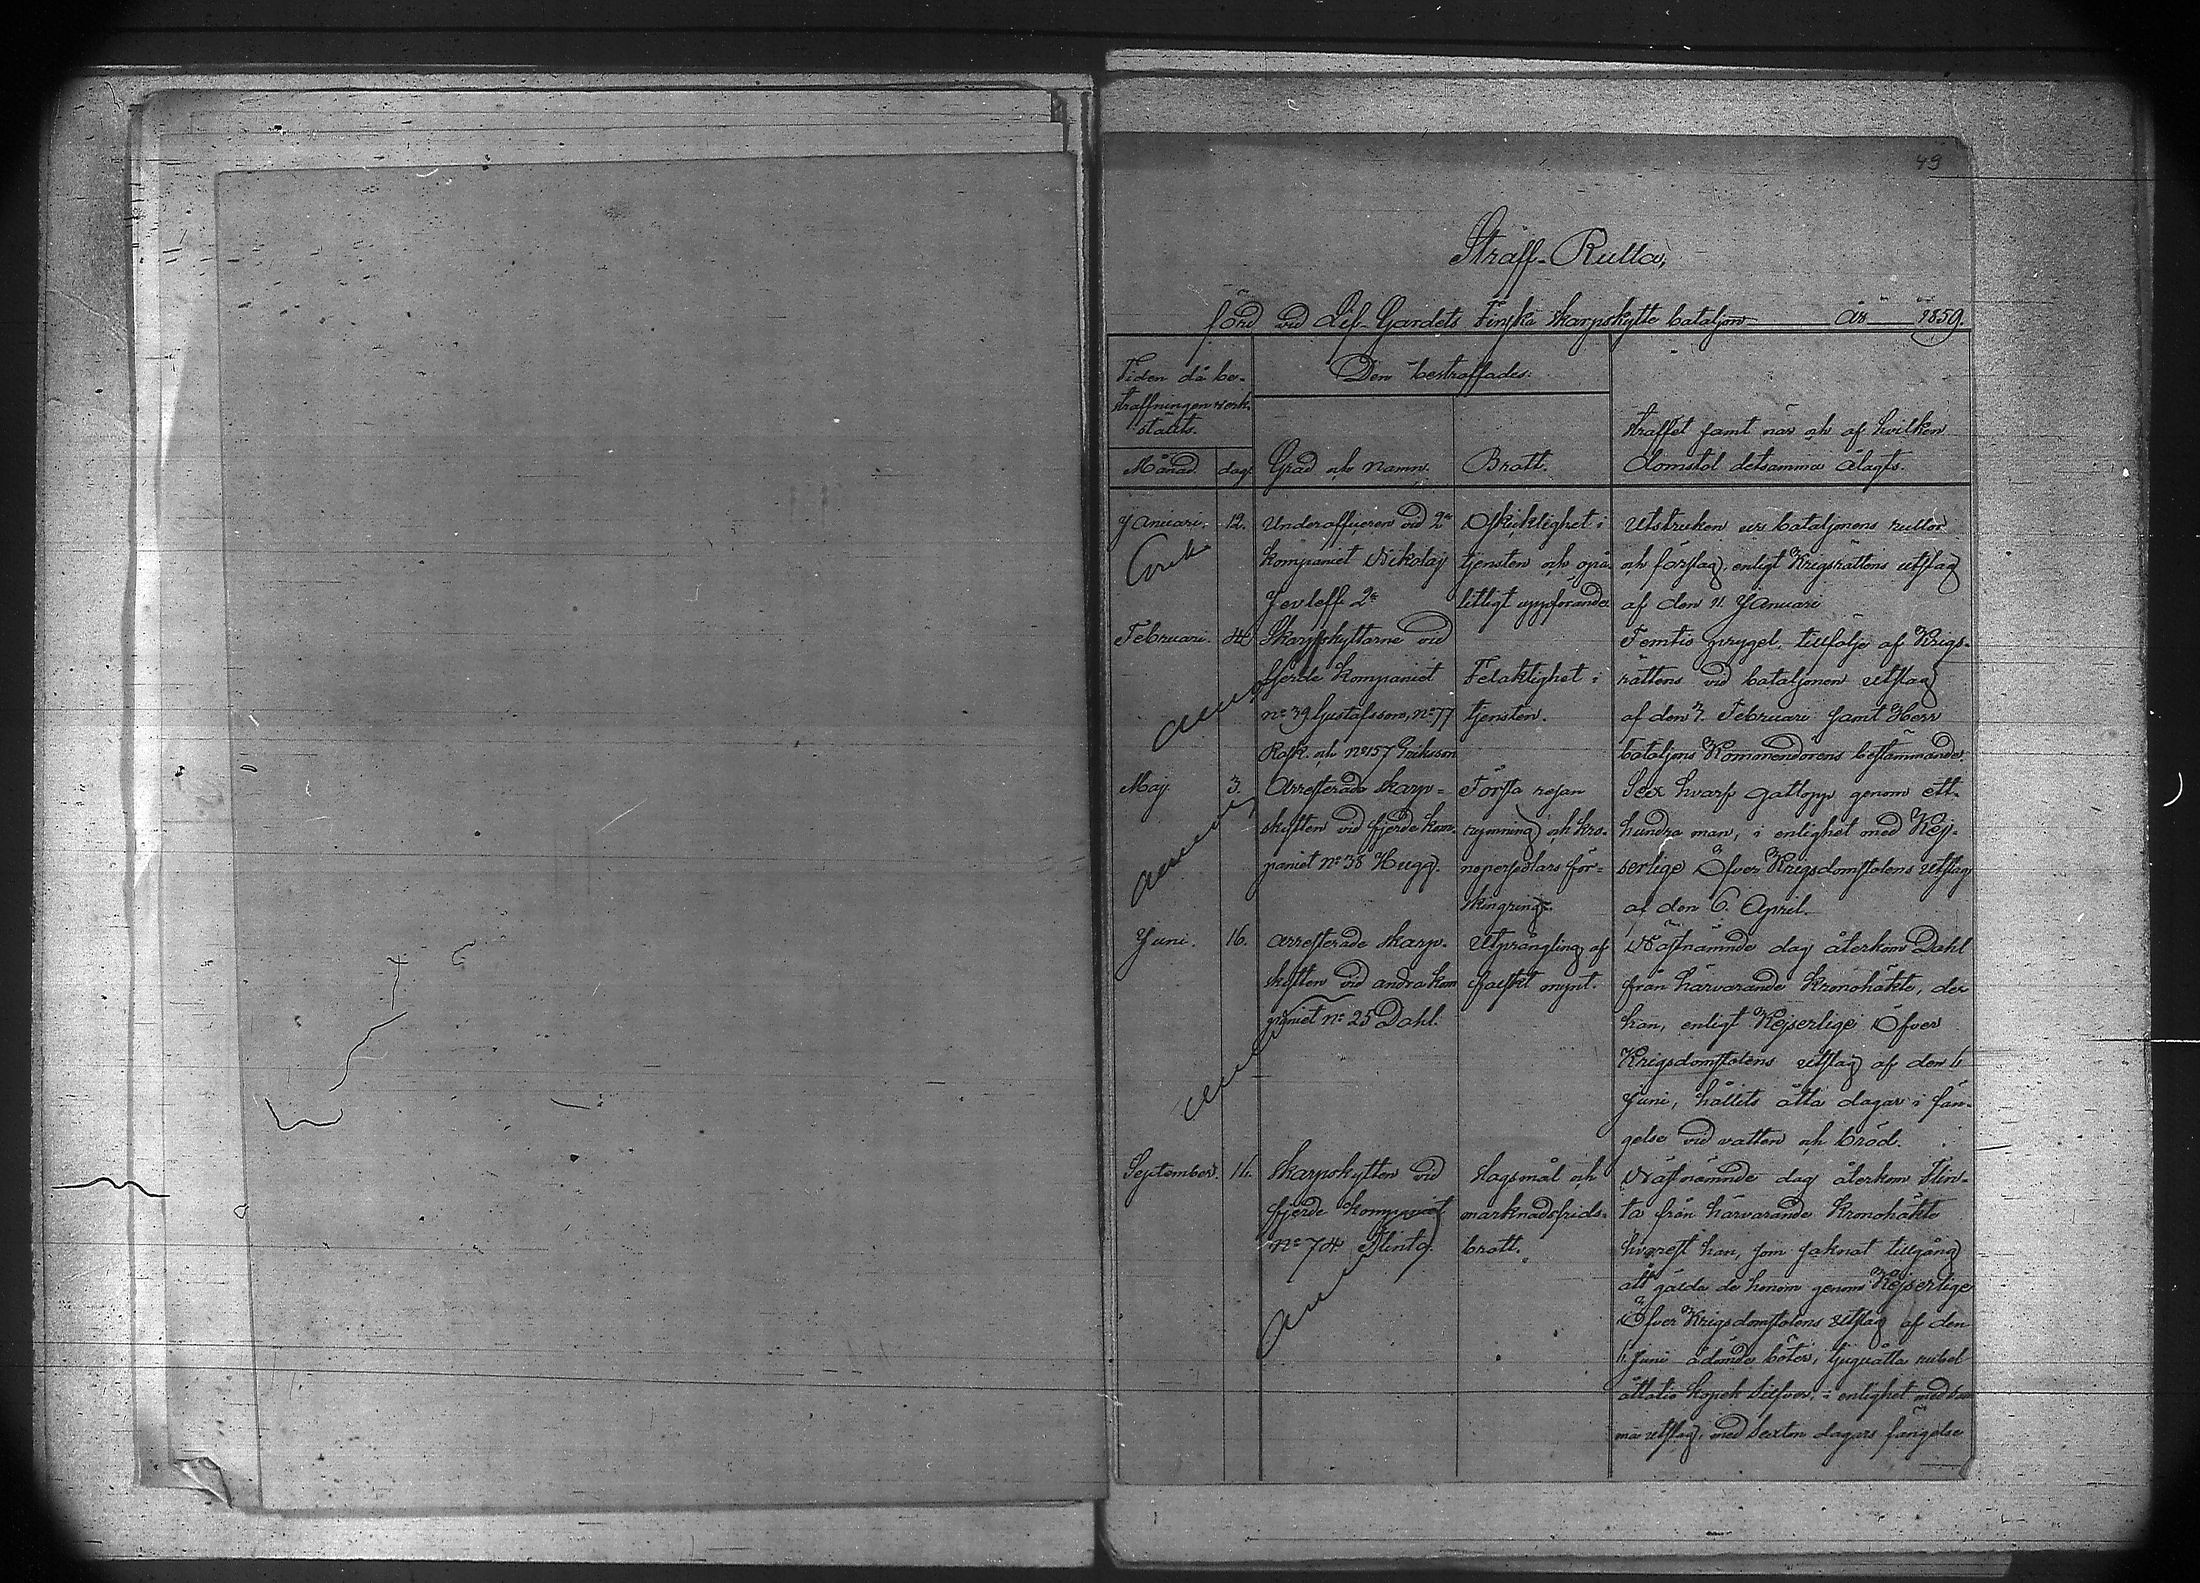 49
Straff-Rulla,
förd vid Lif-Gardets Finska Skarpskytte bataljon År 1859.
Tiden då be-
straffningen verk-
stälts.
Månad. dag.
Den bestraffades:
Grad och Namn.
Brott.
Straffet samt när och af hvilken
domstol detsamma ålagts.
Januari. 12.
Underofficeren vid 2a
kompaniet Nikolaj
Jevleff 2a
Oskicklighet i
tjensten och opå-
litligt uppförande.
Utstruken ur bataljonens rullor
och förslag, enligt Krigsrättens utslag
af den 11 Januari
Februari. 4
Skarpskyttarne vid
fjerde kompaniet
No 39 Gustafsson, No 77
Rask och No 157 Eriksson
Felaktighet i
tjensten.
Femtio prygel, tillfölje af Krigs-
rättens vid bataljonen utslag
af den 3. Februari samt Herr
bataljons Kommendörens bestämmande.
Maj. 3.
Arresterade skarp-
skytten vid fjerde kom-
paniet No 38 Hugg.
Första resan
rymning och kro-
nopersedlars för-
skingring.
Sex hvarf gatlopp genom ett-
hundra man, i enlighet med Kej-
serlige Öfver Krigsdomstolens utslag
af den 6. April.
Juni. 16.
Arresterade skarp-
skytten vid andra kom
paniet No 25 Dahl.
Utprångling af
falskt mynt.
Näsnämnde dag återkom Dahl
från härvarande Kronohäkte, der
han, enligt Kejserlige Öfver
Krigsdomstolens utslag af den 6
Juni, hållits åtta dagar i fän-
gelse vid vatten och bröd.
September. 14.
Skarpskytten vid
fjerde kompaniet
No 74 Flinta.
Slagsmål och
marknadsfrids-
brott.
Näsnämnde dag återkom Flin-
ta från härvarande Kronohäkte
hvarest han, som saknat tillgång
att gälda de honom genom Kejserlige
Öfver Krigsdomstolens utslag af den
Juni ådömda böter, tjuguåtta rubel
åttatio kopek silfver, i enlighet med sam
ma utslag, med sexton dagars fängelse